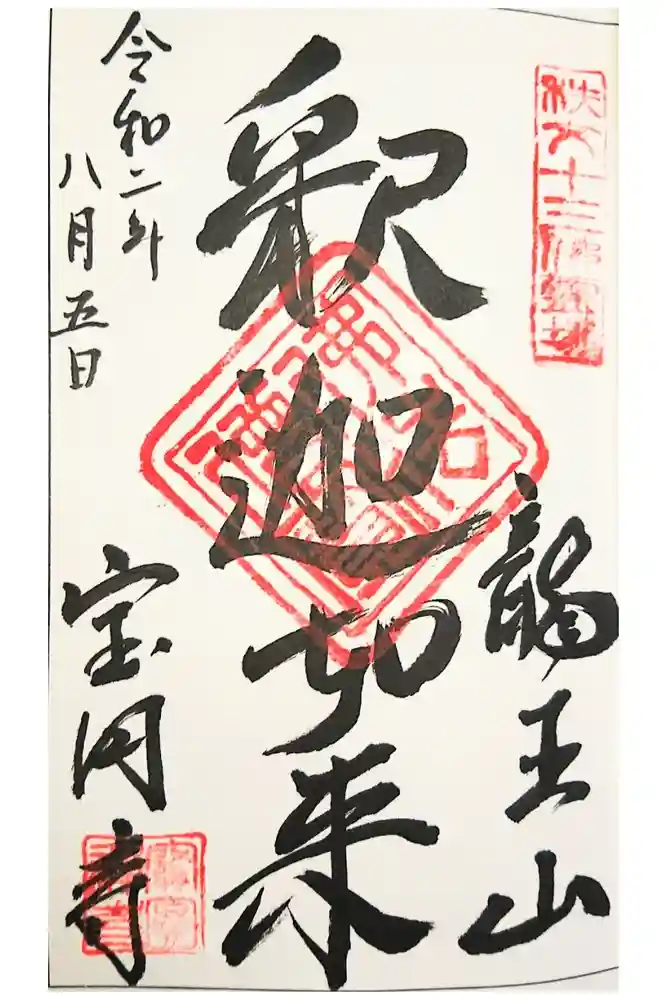 秩父十三仏霊場
龍王山
釈迦如来
宝円寺
令和二年
八月五日